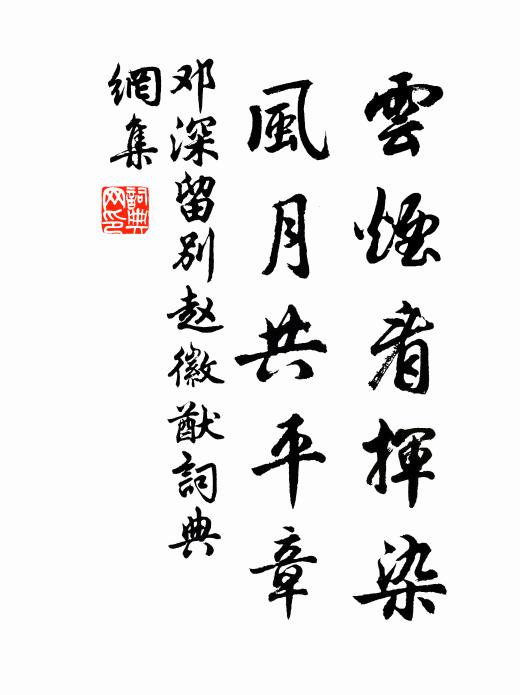 雲煙看揮染
風月共平章
邓深留别赵徽猷詞典
網集
詞典網印